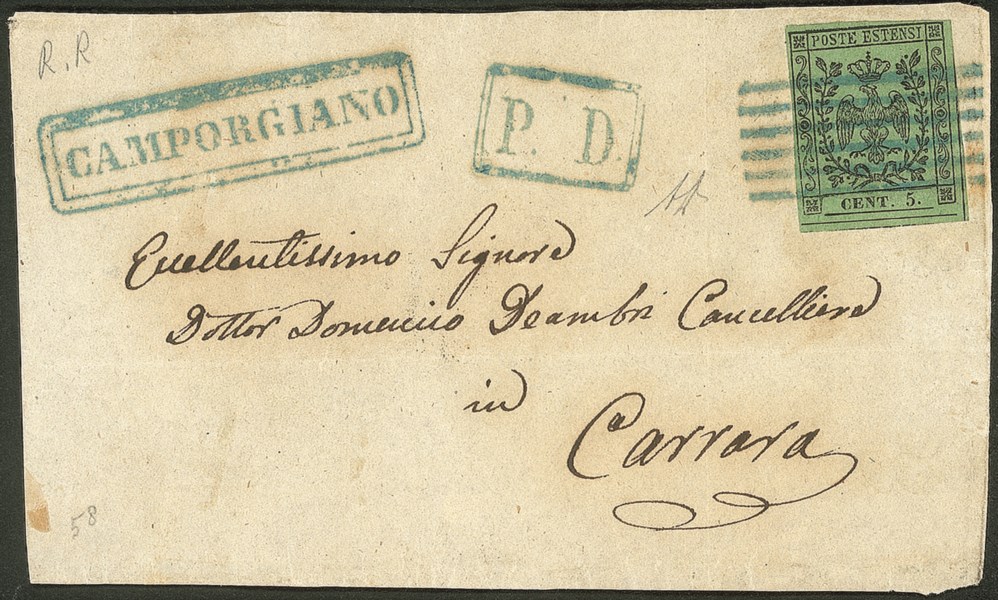 R.R
CAMPORGIANO
P. D.
POSTE ESTENSI
CENT. 5.
Eccellentissimo Signore
Dottor Domenico Deambri Cancelliere
in
Carrara
58